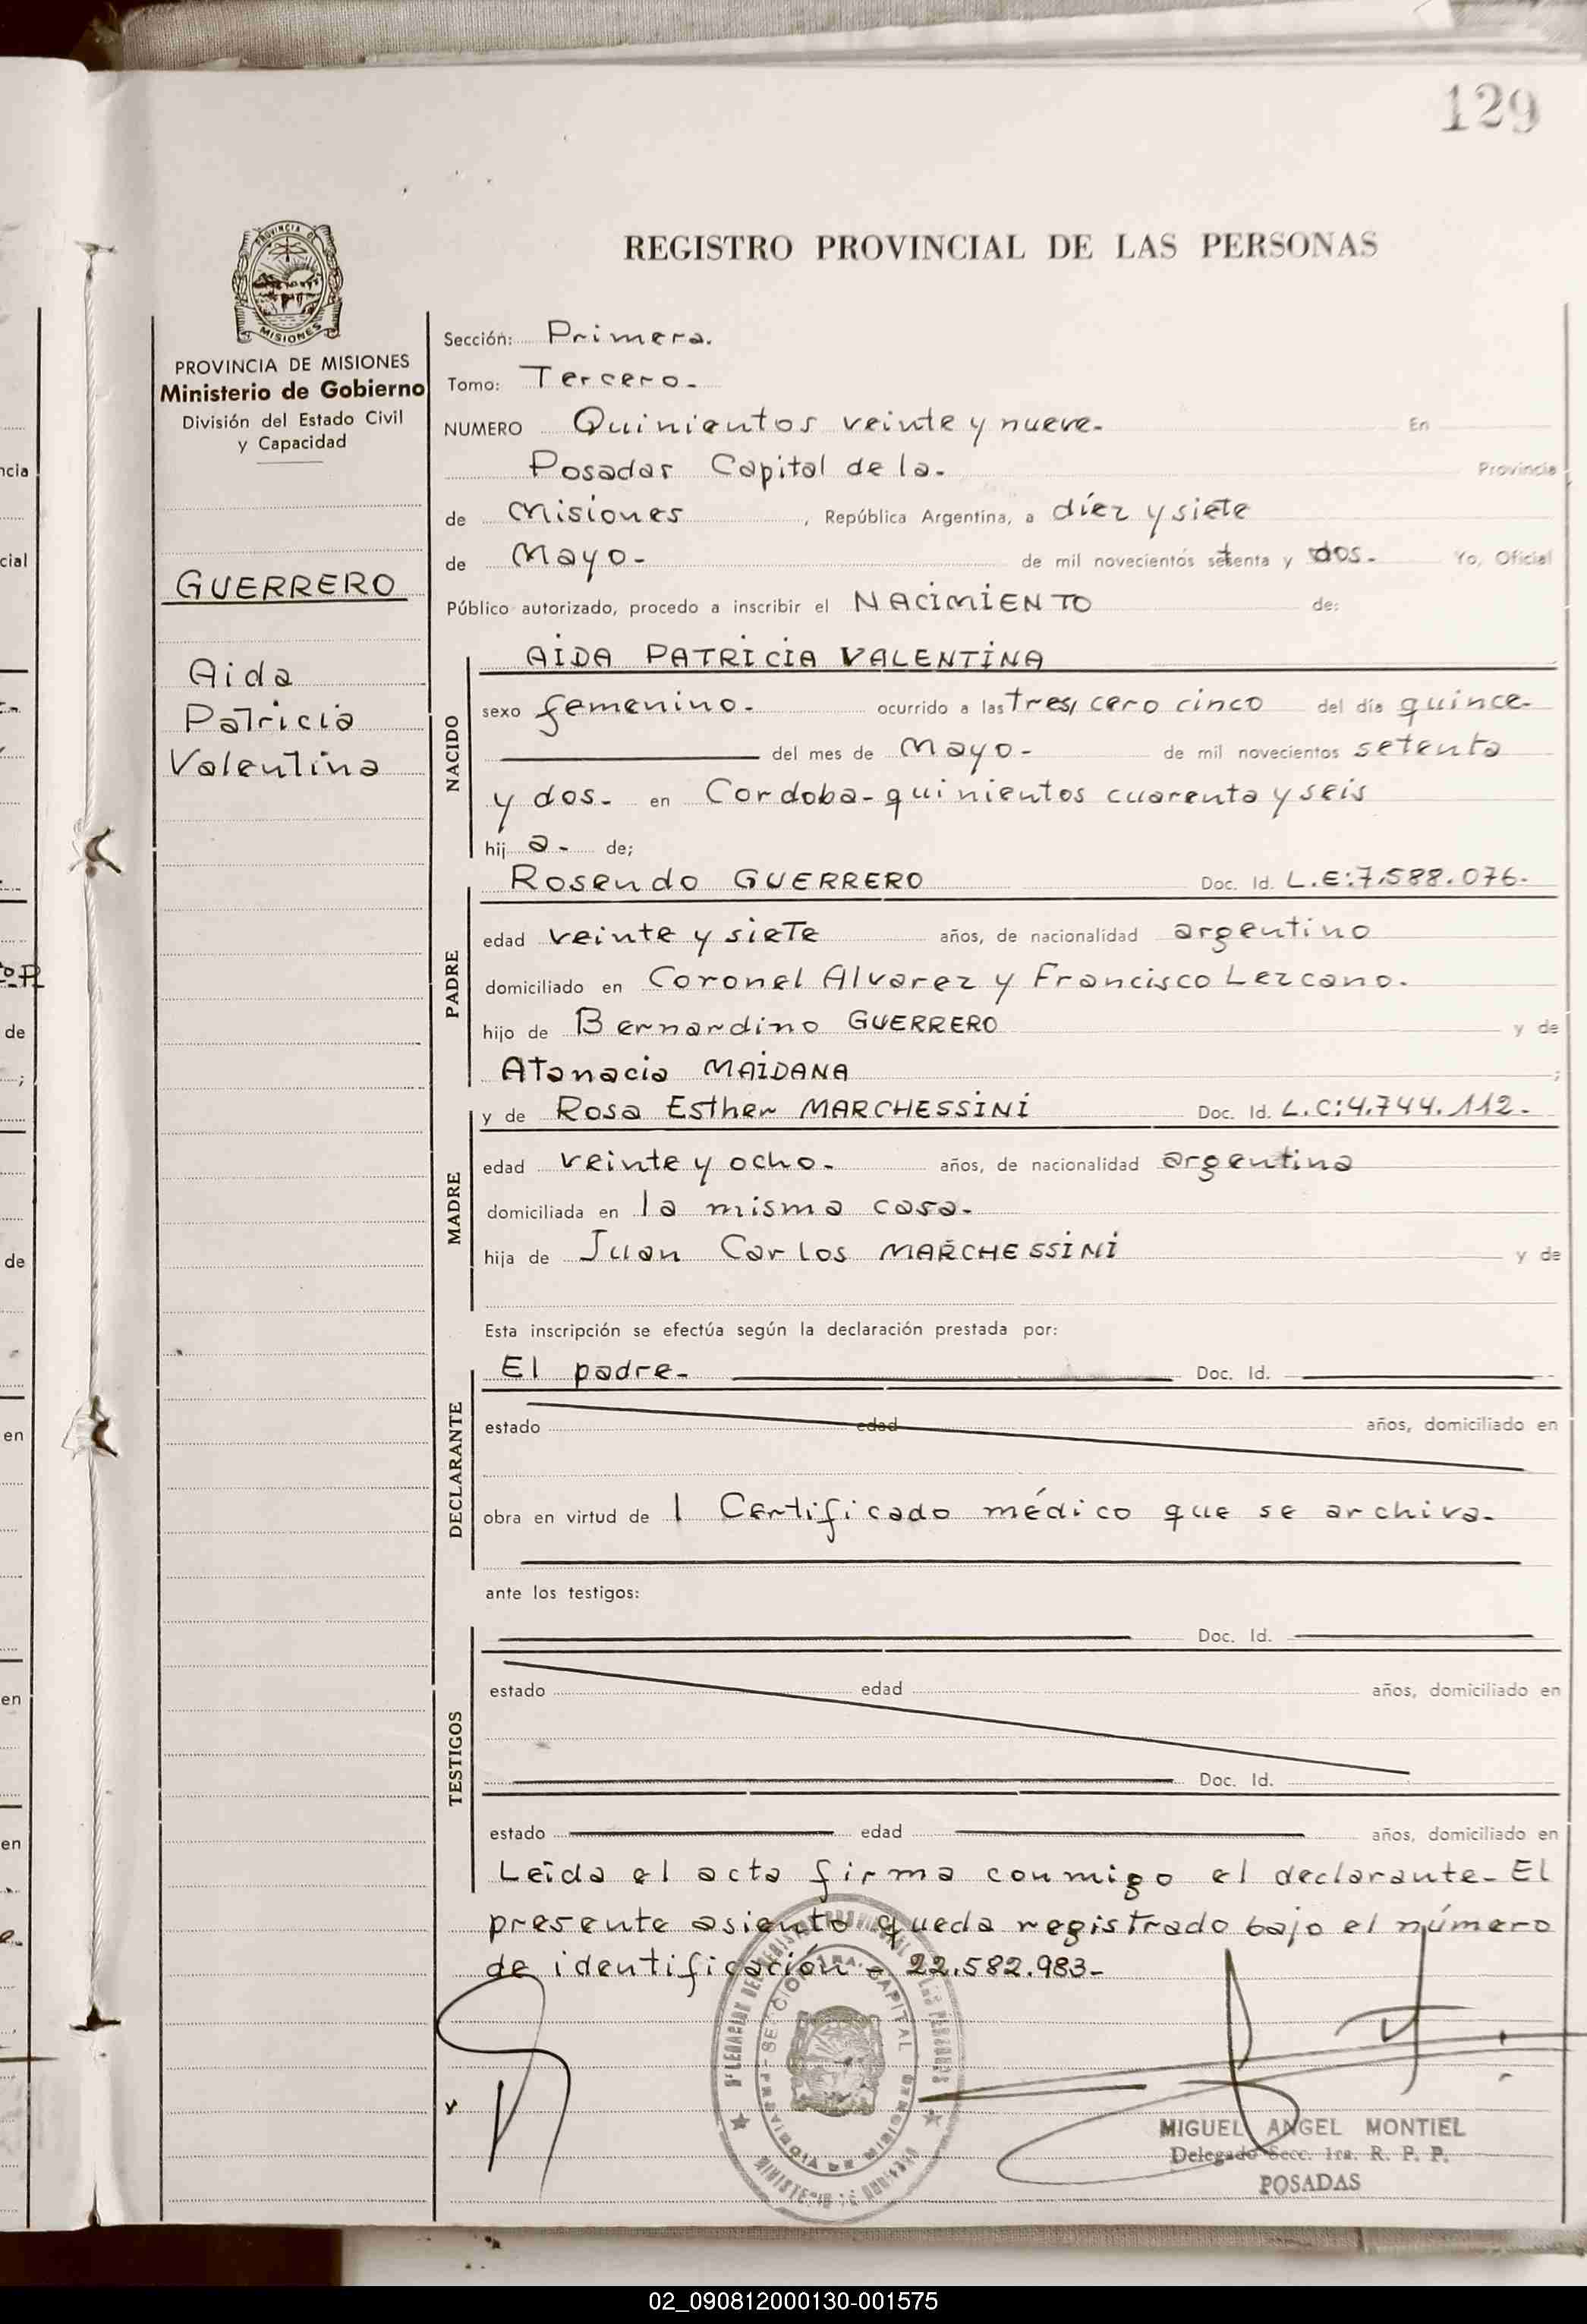 129
REGISTRO PROVINCIAL DE LAS PERSONAS
PROVINCIA DE MISIONES
Ministerio de Gobierno
División del Estado Civil
y Capacidad
GUERRERO
Aida
Patricia
Valentina
Sección: Primera.
Tomo: Tercero-
NUMERO Quinientos veinte y nueve- En
Posadas Capital de la- Provincia
de Misiones, República Argentina, a diez y siete
de Mayo- de mil novecientos setenta y dos- Yo, Oficial
Público autorizado, procedo a inscribir el NACIMIENTO de:
NACIDO
AIDA PATRICIA VALENTINA
sexo femenino- ocurrido a las tres, cero cinco del día quince-
del mes de Mayo- de mil novecientos setenta
y dos- en Cordoba- quinientos cuarenta y seis
hij a- de;
PADRE
Rosendo GUERRERO Doc. Id. L.E:7.588.076-
edad veinte y siete años, de nacionalidad argentino
domiciliado en Coronel Alvarez y Francisco Lezcano.
hijo de Bernardino GUERRERO y de
Atanacia MAIDANA ;
MADRE
y de Rosa Esther MARCHESSINI Doc. Id. L.C:4.744.112-
edad veinte y ocho- años, de nacionalidad argentina
domiciliada en la misma casa-
hija de Juan Carlos MARCHESSINI y de
Esta inscripción se efectúa según la declaración prestada por:
DECLARANTE
El padre- Doc. Id.
estado edad años, domiciliado en
obra en virtud de 1 Certificado médico que se archiva-
ante los testigos:
TESTIGOS
Doc. Id.
estado edad años, domiciliado en
Doc. Id.
estado edad años, domiciliado en
Leida el acta firma conmigo el declarante- El
presente asiento queda registrado bajo el número
de identificación - 22.582.983-
MIGUEL ANGEL MONTIEL
Delegado Secc. 1ra. R. P. P.
POSADAS
02_090812000130-001575